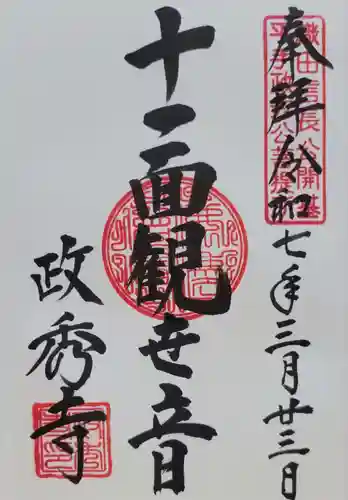 奉拝 令和七年三月廿三日
織田信長公開基
平手政秀公菩提
十一面観世音
政秀寺